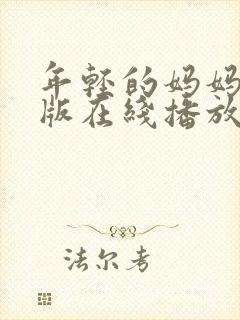 年轻的妈妈
版在线播放
法尔考